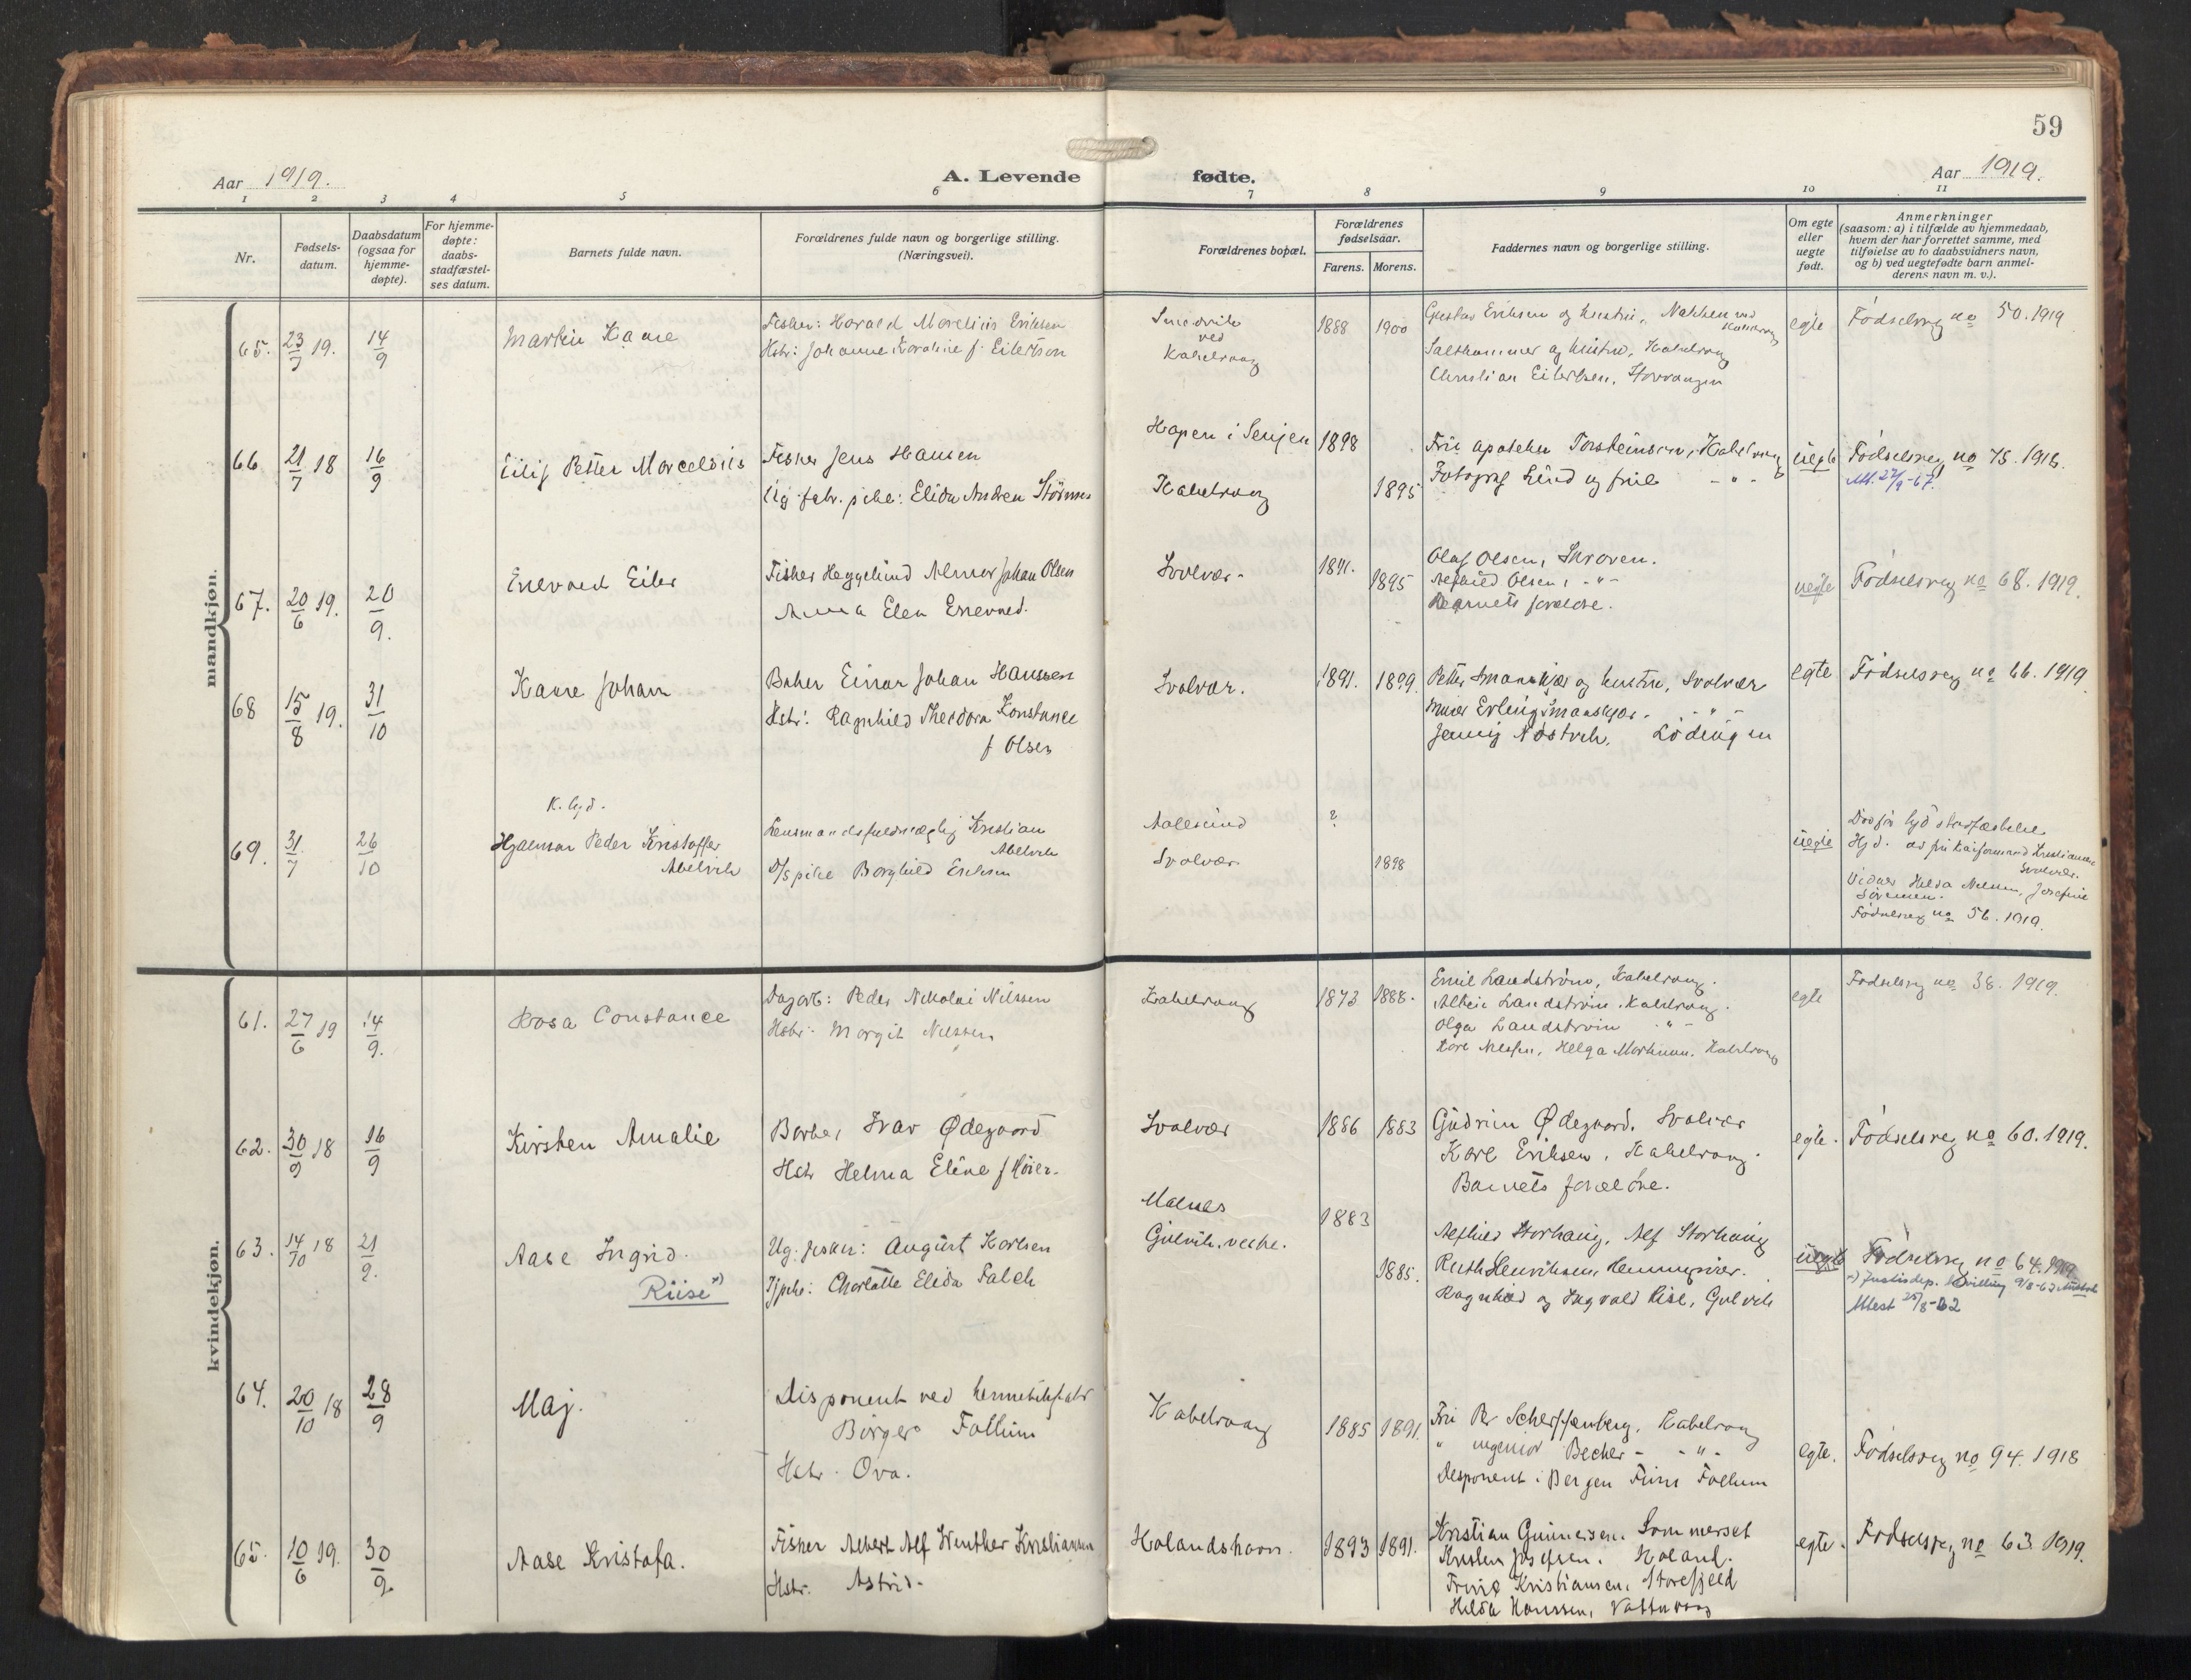 59
Aar 1919.
A. Levende fødte.
Aar 1919.
1 2 3 4 5 6 7 8 9 10 11
Nr.
Fødsels-
datum.
Daabsdatum
(ogsaa for
hjemme-
døpte).
For hjemme-
døpte:
daabs-
stadfæstel-
ses datum.
Barnets fulde navn.
Forældrenes fulde navn og borgerlige stilling.
(Næringsvei).
Forældrenes bopæl.
Forældrenes
fødselsaar.
Farens. Morens.
Faddernes navn og borgerlige stilling.
Om egte
eller
uegte
født.
Anmerkninger
(saasom: a) i tilfælde av hjemmedaab,
hvem der har forrettet samme, med
tilføielse av to daabsvidners navn,
og b) ved uegtefødte barn anmel-
derens navn m. v.).
mandkjøn.
65. 23/7 19. 14/9
Martin Kaare
Fisker: Harald Marelius Eriksen
Hstr: Johanne Karoline f. Eilertsen
ved
Kabelvaag
1888 1900
Gustav Eriksen og hustru,
og hustru, Kabelvaag
Christian Eilertsen,
egte
Fødselsreg no 50. 1919
66 21/7 18 16/9
Eilif Petter Marcelius
Fisker Jens Hansen
Ug. fabr. pike: Elida Andrea
Hopen i Senjen
Kabelvaag
1898
1895
Fru apoteker Torsteinsen, Kabelvaag
Fotograf Lund og frue - " -
uegte
Fødselsreg no 75. 1918.
67. 20/6 19. 20/9.
Enevald Eiler
Fisker Heggelund Almar Johan Olsen
Anna Elen Enevald.
Svolvær
1895
Olaf Olsen, Skroven.
Olsen, - " -
Barnets forældre.
uegte
Fødselsreg no 68. 1919.
68 15/8 19. 31/10
Kaare Johan
Baker Einar Johan Hanssen
Hstr: Ragnhild Theodora Konstance
f Olsen
Svolvær.
1891. 1899.
Petter Smaaskjær og hustru, Svolvær
Erling Smaaskjær - " -
Jenny Løding en
egte
Fødselsreg no 66. 1919.
69. 31/7 26/10
Hjalmar Peder Kristoffer
Abelvik
Lensmandsfuldmægtig Kristian
Abelvik
pike Borghild Eriksen
Aalesund
Svolvær
?
1898
uegte
Hjd. av fru
Svolvær.
Vidner Helda Nilsen, Josefine
Sørensen.
Fødselsreg no 56. 1919.
kvindekjøn.
61. 27/6 19 14/9.
Rosa Constance
Dagarb: Peder Nikolai Nilssen
Hstr: Margit Nilssen
Kabelvaag
1873 1888.
Emil Landstrøm, Kabelvaag.
Landstrøm. Kabelvaag.
Olga Landstrøm - " -
Tore Nilssen, Helga Kabelvaag
egte
Fødselsreg no 38. 1919.
62. 30/9 18 16/9
Kirsten Amalie
Barber Ivar Ødegaard
Hstr Helma Eline f Høier.
Svolvær
1886 1883
Gudrun Ødegaard, Svolvær
Karl Eriksen, Kabelvaag.
Barnets forældre.
egte.
Fødselsreg no 60. 1919.
63. 14/10 18 21/9.
Aase Ingrid.
Riise x)
Ug. fisker: August Karlsen
Tjpike: Charlotte Elida Falch
Malnes
Gulvik,
1883
1885.
Alfhild Storhaug, Alf Storhaug
Ruth Henriksen, Henningsvær.
Ragnhild og Ingvald Rise, Gulvik
uegte
Fødselsreg no 64. 1919
x) Justisdep. bevilling 9/8-62
Attest 25/8-62
64. 20/10 18 28/9
Maj.
Disponent ved hermetikfabr
Birger Follum
Hstr. Ova.
Kabelvaag
1885 1891.
Fru Per Scherffenberg, Kabelvaag
" ingeniør Becker - " -
Disponent i Bergen Finn Follum
egte.
Fødselsreg no 94. 1918
65. 10/6 19. 30/9
Aase Kristofa.
Fisker Albert Alf Winther Kristiansen
Hstr. Astrid.
Holandshavn.
1893 1891.
Kristian Gunnersen. Sommerset
Kristen Josefsen. Holand.
Kristiansen, Storefjeld
Hilda Hanssen,
egte.
Fødselsreg no 63. 1919.